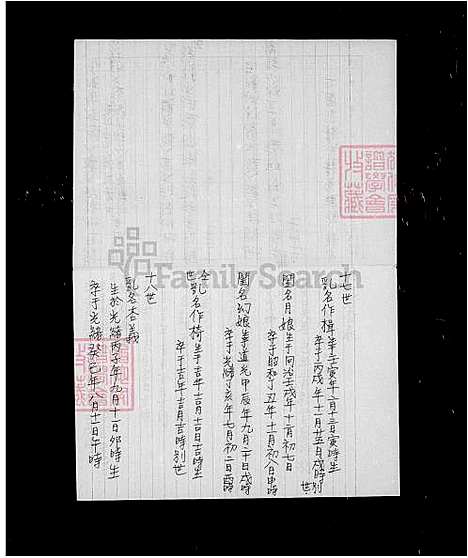 十七世
乳名作楫 生于壬寅年二月十三日寅時生
卒于丙戌年十一月廿五日戌時別世
閨名月娘 生于同治壬戌年十二月初七日
卒于昭和丁丑年十一月初八日申時
閨名幻娘 生于道光甲辰年九月二十日戌時
卒于光緒丁亥年七月初二日酉時
仝世乳名作椅 生于吉年吉月吉日吉時生
卒于吉年吉月吉時別世
十八世
乳名杏義
生於光緒丙子年九月十一日卯時生
卒于光緒癸巳年八月十一日午時
FamilySearch